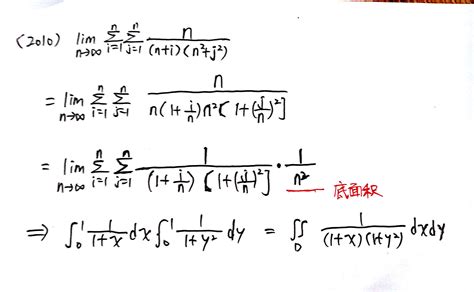 (2010) lim_{n→∞} Σ_{i=1}^{n} Σ_{j=1}^{n} n/((n+i)(n²+j²))
= lim_{n→∞} Σ_{i=1}^{n} Σ_{j=1}^{n} n/(n(1+i/n)n²[1+(j/n)²])
= lim_{n→∞} Σ_{i=1}^{n} Σ_{j=1}^{n} 1/((1+i/n)[1+(j/n)²]) · 1/n² 底面积
⇒ ∫₀¹ 1/(1+x) dx ∫₀¹ 1/(1+y²) dy = ∬_D 1/((1+x)(1+y²)) dxdy